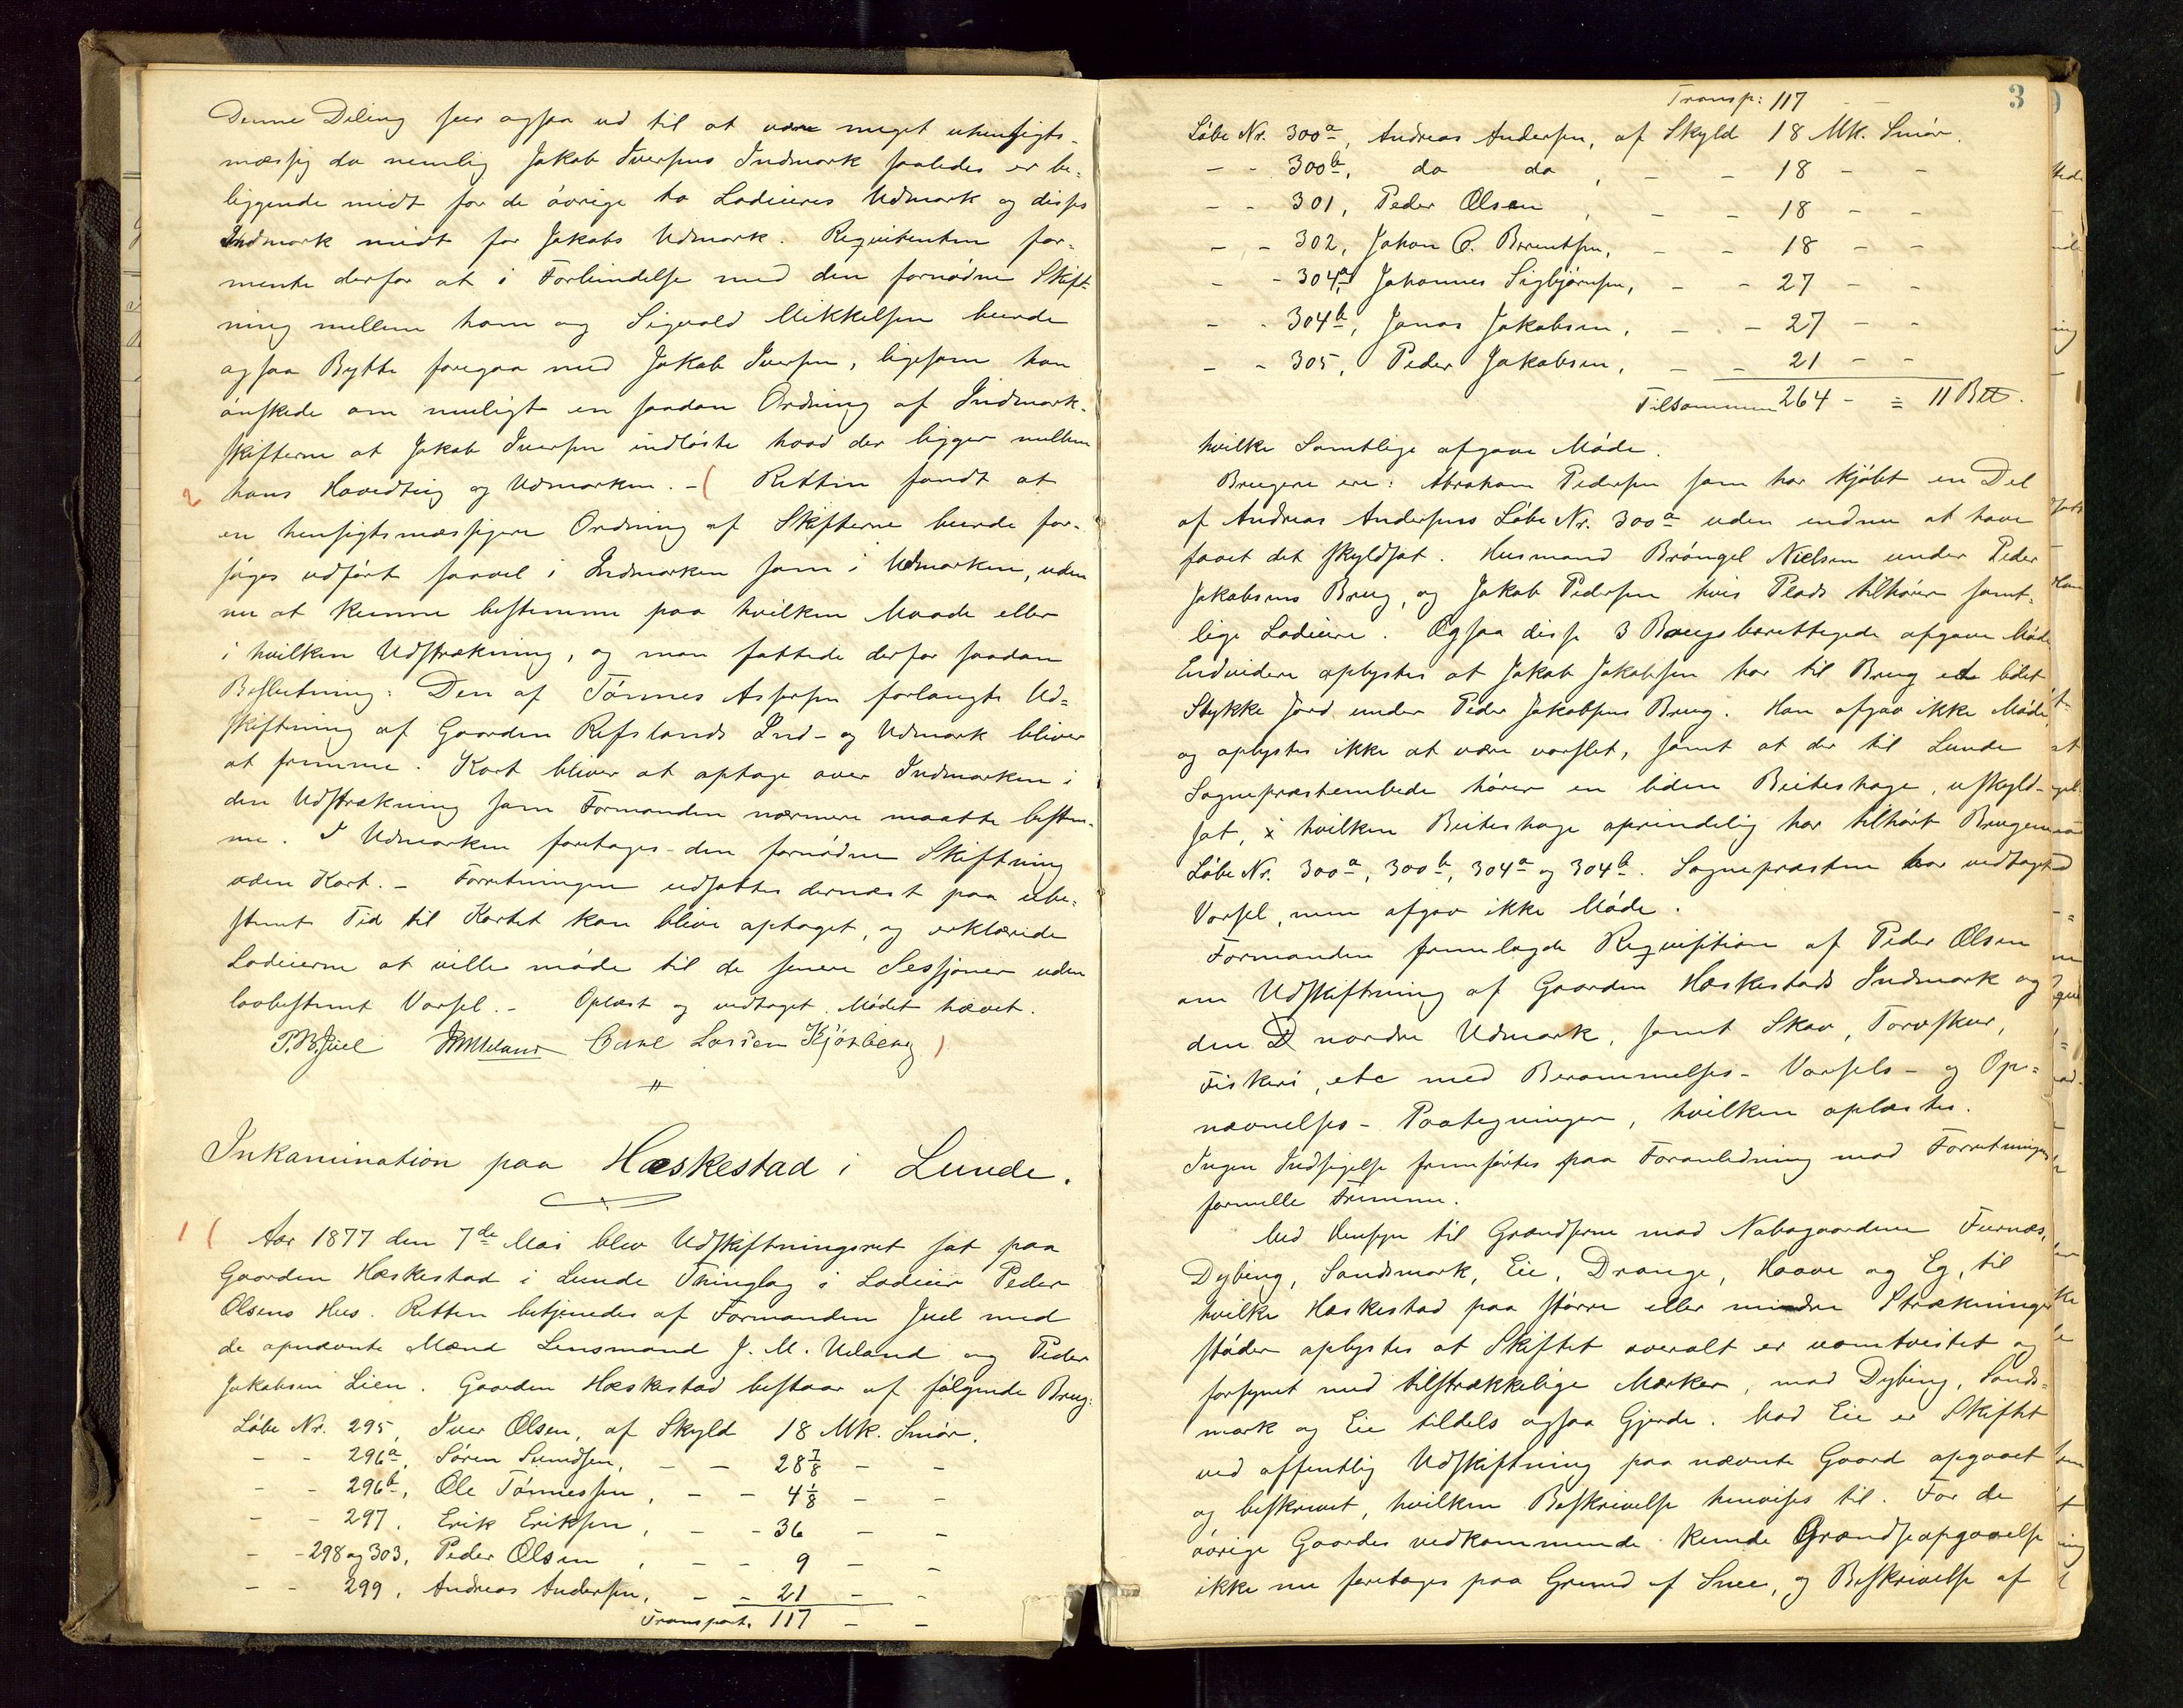 Denne Deling seer ogsaa ud til at være meget uhensigts-
mæssig da nemlig Jakob Iversens Indmark saaledes er be-
liggende midt for de øvrige to Lodeieres Udmark og disses
Indmark midt for Jakobs Udmark. Reqvirenten for-
mente derfor at i Forbindelse med den fornødne Skift-
ning mellem ham og Sigvald Mikkelsen burde
ogsaa Bytte foregaa med Jakob Iversen, ligesom han
ønskede om muligt en saadan Ordning af Indmark-
skifterne at Jakob Iversen indløste hvad der ligger mellem
2 hans Hovedteig og Udmarken. - ( Retten fandt at
en hensigtsmæssigere Ordning af Skifterne burde for-
søges udført saavel i Indmarken som i Udmarken, uden
nu at kunne bestemme paa hvilken Maade eller
i hvilken Udstrækning, og man fattede derfor saadan
Beslutning: Den af Tönnes Assersen forlangte Ud-
skiftning af Gaarden Refslands Ind- og Udmark bliver
at fremme. Kart bliver at optage over Indmarken i
den Udstrækning som Formanden nærmere maatte bestem-
me. I Udmarken foretages den fornødne Skiftning
uden Kart. - Forretningen udsattes dernæst paa ube-
stemt Tid til Kartet kan blive optaget, og erklærede
Lodeierne at ville møde til de senere Sessjoner uden
lovbestemt Varsel. - Oplæst og vedtaget. Mødet hævet.
P.B. Juel JMUeland Carl Lassen Kjørberg )
"
Inkamination paa Hæskestad i Lunde.
1 ( Aar 1877 den 7de Mai blev Udskiftningsret sat paa
Gaarden Hæskestad i Lunde Thinglag i Lodeier Peder
Olsens Hus. Retten betjenedes af Formanden Juel med
de opnævnte Mænd Lensmand J. M. Ueland og Peder
Jakobsen Lien. Gaarden Hæskestad bestaar af følgende Brug:
Løbe Nr. 295, Iver Olsen, af Skyld 18 Mk. Smør.
- - 296a, Søren Sundsen, - - 28 7/8 - -
- - 296b, Ole Tønnessen, - - 4 1/8 - -
- - 297, Erik Eriksen, - - 36 - -
- - 298 og 303, Peder Olsen, - - 9 - -
- - 299, Andreas Andersen, - - 21 - -
Transport. 117 - -
3
Transp: 117 - -
Løbe Nr. 300a, Andreas Andersen, af Skyld 18 Mk. Smør.
- - 300b, do do, - - 18 - -
- - 301, Peder Olsen, - - 18 - -
- - 302, Johan C. Berentsen, - - 18 - -
- - 304a, Johannes Sigbjørnsen, - - 27 - -
- - 304b, Jonas Jakobsen, - - 27 - -
- - 305, Peder Jakobsen, - - 21 - -
Tilsammen 264 - = 11 Btt.
hvilke Samtlige afgave Møde.
Brugere ere: Abraham Pedersen som har kjøbt en Del
af Andreas Andersens Løbe Nr. 300a uden endnu at have
faaet det skyldsat. Husmand Brøngel Nielsen under Peder
Jakobsens Brug, og Jakob Pedersen hvis Plads tilhører samt-
lige Lodeiere. Ogsaa disse 3 Brugsberettigede afgave Møde
Endvidere oplystes at Jakob Jakobsen har til Brug et lidet
Stykke Jord under Peder Jakobsens Brug. Han afgav ikke Møde,
og oplystes ikke at være varslet, samt at der til Lunde
Sognepræstembede hører en liden Beiteshage, uskyld-
sat, x hvilken Beiteshage oprindelig har tilhørt Brugene
Løbe Nr. 300a, 300b, 304a og 304b. Sognepræsten har vedtaget
Varsel, men afgav ikke Møde.
Formanden fremlagde Reqvisition af Peder Olsen
om Udskiftning af Gaarden Hæskestads Indmark og
den nordre Udmark, samt Skov, Torvskur,
Fiskeri, etc med Berammelses- Varsels- og Op-
nævnelses- Paategninger, hvilken oplæstes.
Ingen Indsigelse fremførtes paa Foranledning mod Forretningens
formelle Fremme.
Med Hensyn til Grændserne mod Nabogaardene Furnæs,
Dybing, Sandsmark, Eie, Drange, Haave og Eg, til
hvilke Hæskestad paa større eller mindre Strækninger
støder oplystes at Skiftet overalt er uomtvistet og
forsynet med tilstrækkelige Mærker, mod Dybing, Sands-
mark og Eie tildels ogsaa Gjerde. Mod Eie er Skiftet
ved offentlig Udskiftning paa nævnte Gaard opgaaet
og beskrevet, hvilken Beskrivelse henvises til. For de
øvrige Gaardes vedkommende kunde Grændseopgaaelse
ikke nu foretages paa Grund af Snee, og Beskrivelse af